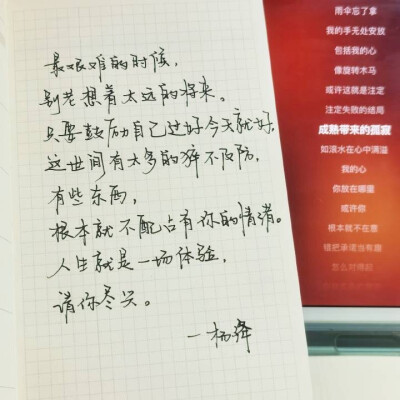 最艰难的时候，
别老想着太远的将来。
只要鼓励自己过好今天就好，
这世间有太多的猝不及防，
有些东西，
根本就不配占有你的情绪。
人生就是一场体验，
请你尽兴。
—杨绛
雨伞忘了拿
我的手无处安放
包括我的心
像旋转木马
或许这就是注定
注定失败的结局
成熟带来的孤寂
如浪水在心中满溢
我的心
你放在哪里
或许你
根本就不在意
错把承诺当有趣
怎么对得起